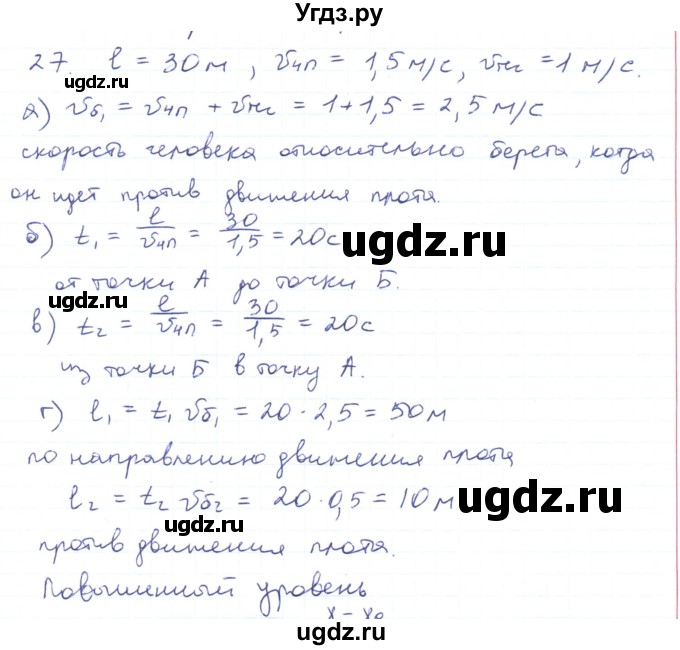 Угдз.ру
27. l = 30 м, υчп = 1,5 м/с, υпт = 1 м/с.
ugdz.ru
а) υб₁ = υчп + υпт = 1 + 1,5 = 2,5 м/с
скорость человека относительно берега, когда
он идет против движения плота.
б) t₁ = l/υчп = 30/1,5 = 20 с
ugdz.ru
от точки А до точки Б.
ugdz.ru
в) t₂ = l/υчп = 30/1,5 = 20 с
из точки Б в точку А.
г) l₁ = t₁ υб₁ = 20 · 2,5 = 50 м
по направлению движения плота
l₂ = t₂ υб₂ = 20 · 0,5 = 10 м
ugdz.ru
ugdz.ru
против движения плота.
Повышенный уровень
x – x₀
ugdz.ru